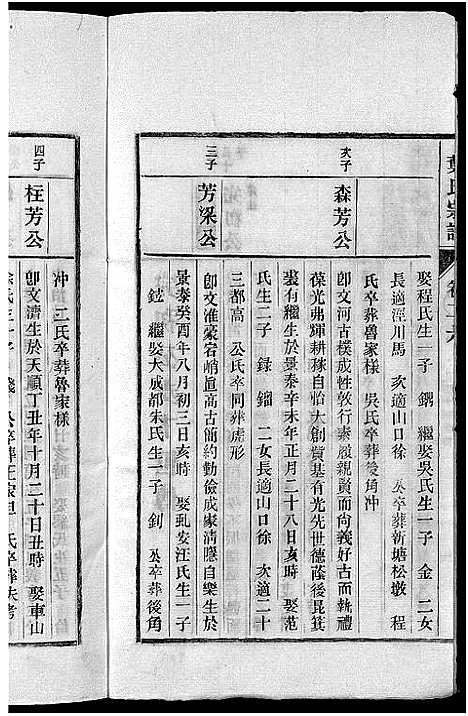 葉氏宗譜 卷二六
娶程氏生一子 鐦 繼娶吳氏生一子 金 二女
長適涇川馬 次適山口徐 公卒葬新塘松墩 程
氏卒葬魯家樣 吳氏卒葬後角冲
次子
森芳公
卽文河古樸成性敦行素履親賢而向義好古而執禮
葆光弗輝耕稼自怡大創貲基有光先世德蔭後昆箕
裘有繼生於景泰辛未年正月二十八日亥時 娶范
氏生二子 録 鎦 二女長適山口徐 次適二十
三都高 公氏卒同葬虎形
三子
芳梁公
卽文淮豪宕峭直高古簡約勤儉成家淸隱自樂生於
景泰癸酉年八月初三日亥時 娶虬安汪氏生一子
鉉 繼娶大成都朱氏生一子 釗 公卒葬後角
冲 二氏卒葬魯家樣
四子
枉芳公
卽文濟生於天順丁丑年十月二十日丑時 娶車山
徐氏生一子 公卒葬 氏卒葬失考